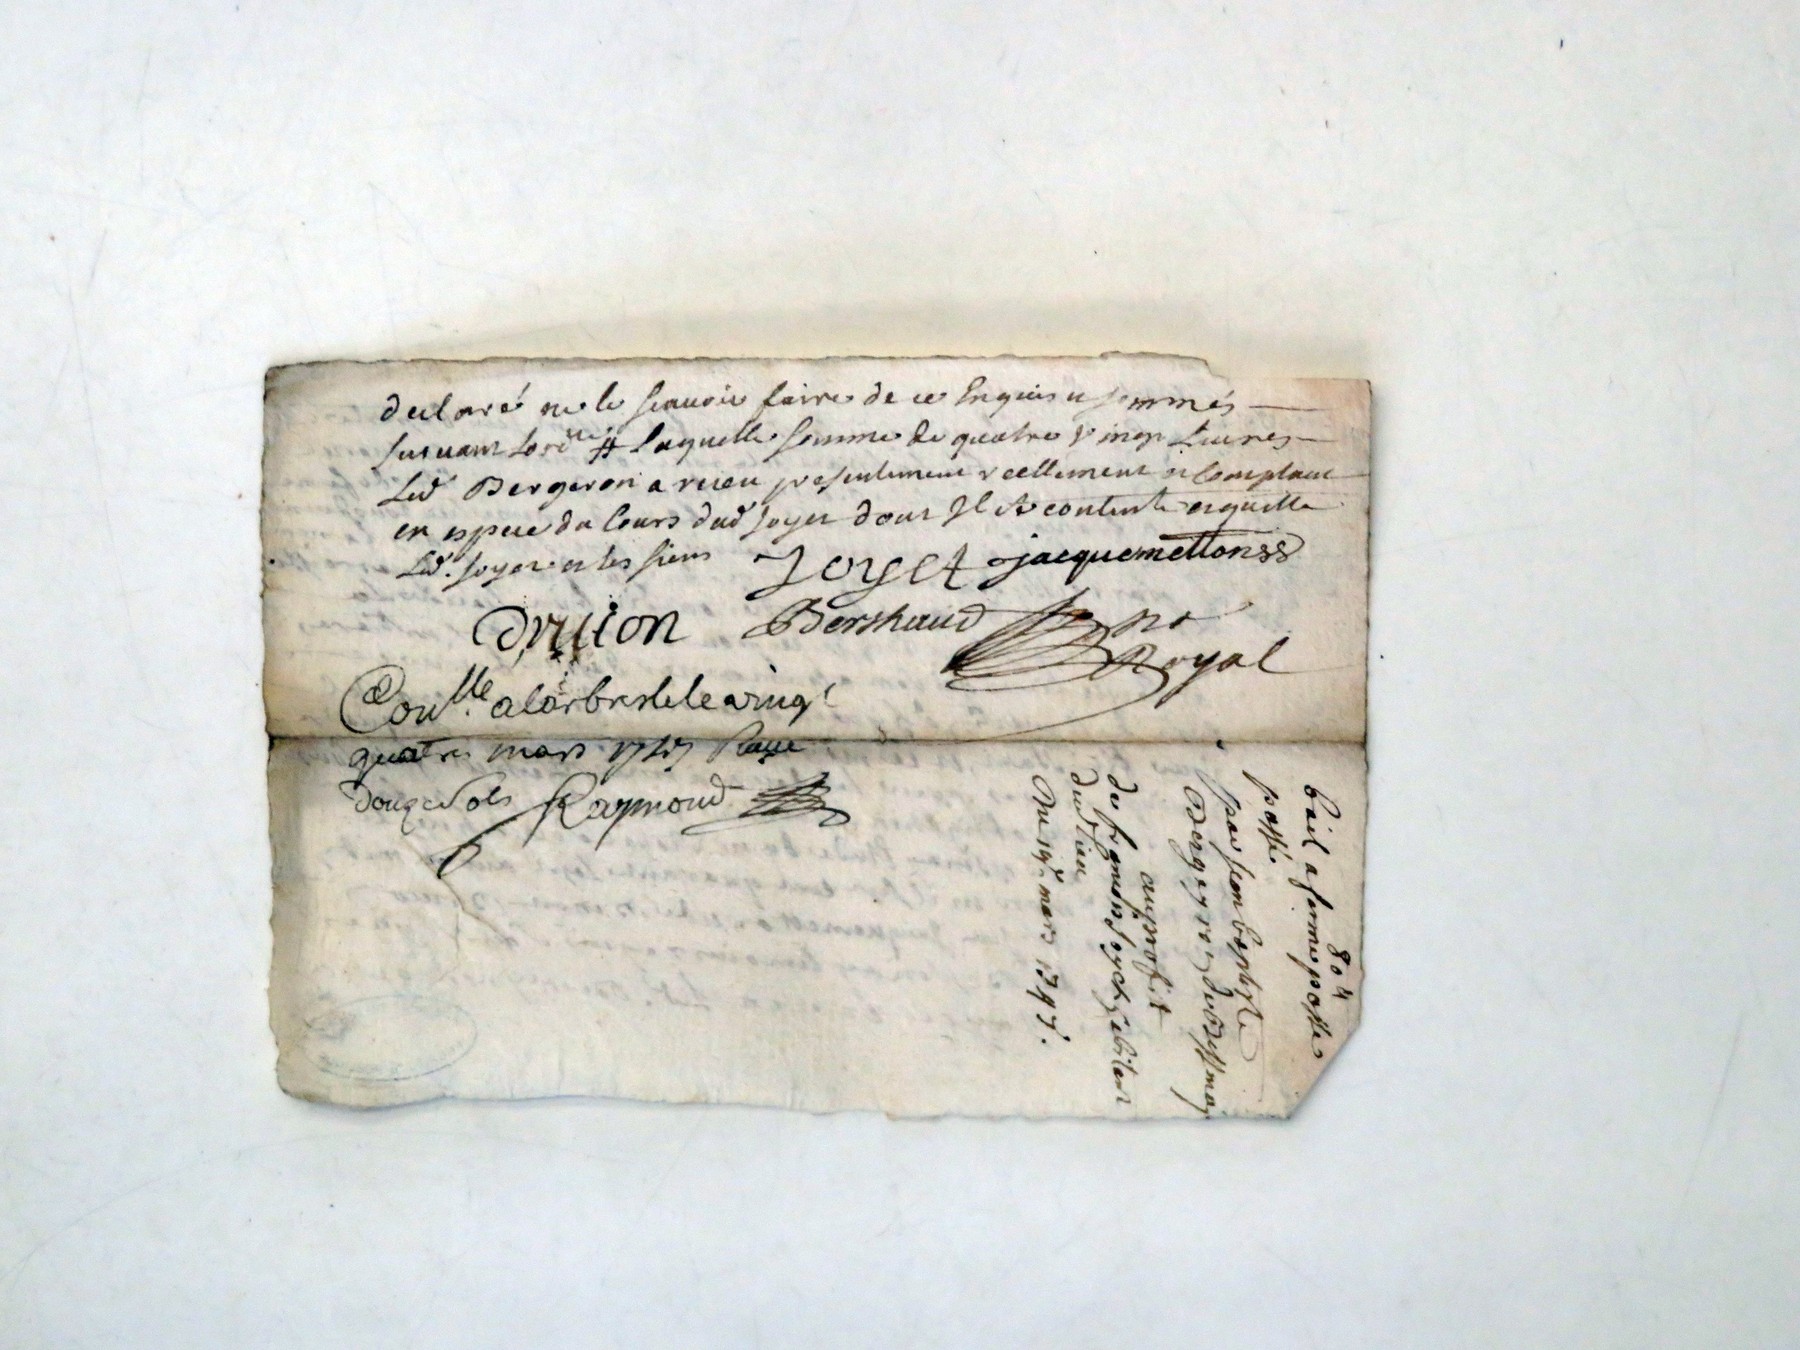 declaré ne le scavoir faire de ce Enquis et sommés
suivant Lord.nce # laquelle somme de quatre vingt Livres
Led. Bergeron a receu presentement reellement et Comptant
en espece du Cours dud. Joyet dont Il se contente et quitte
Led. Joyet et les siens Joyet jacquemettonss
druion Bershaud no.
Royal
Con.lle alarbresle le vingt
quatre mars 1747 Reçu
douze sols Raymond
804
bail a ferme passé
passé
par Jean baptiste
Bergeron
au profit
de françois Joyet habitant
dud. lieu
Du 19.e mars 1747.